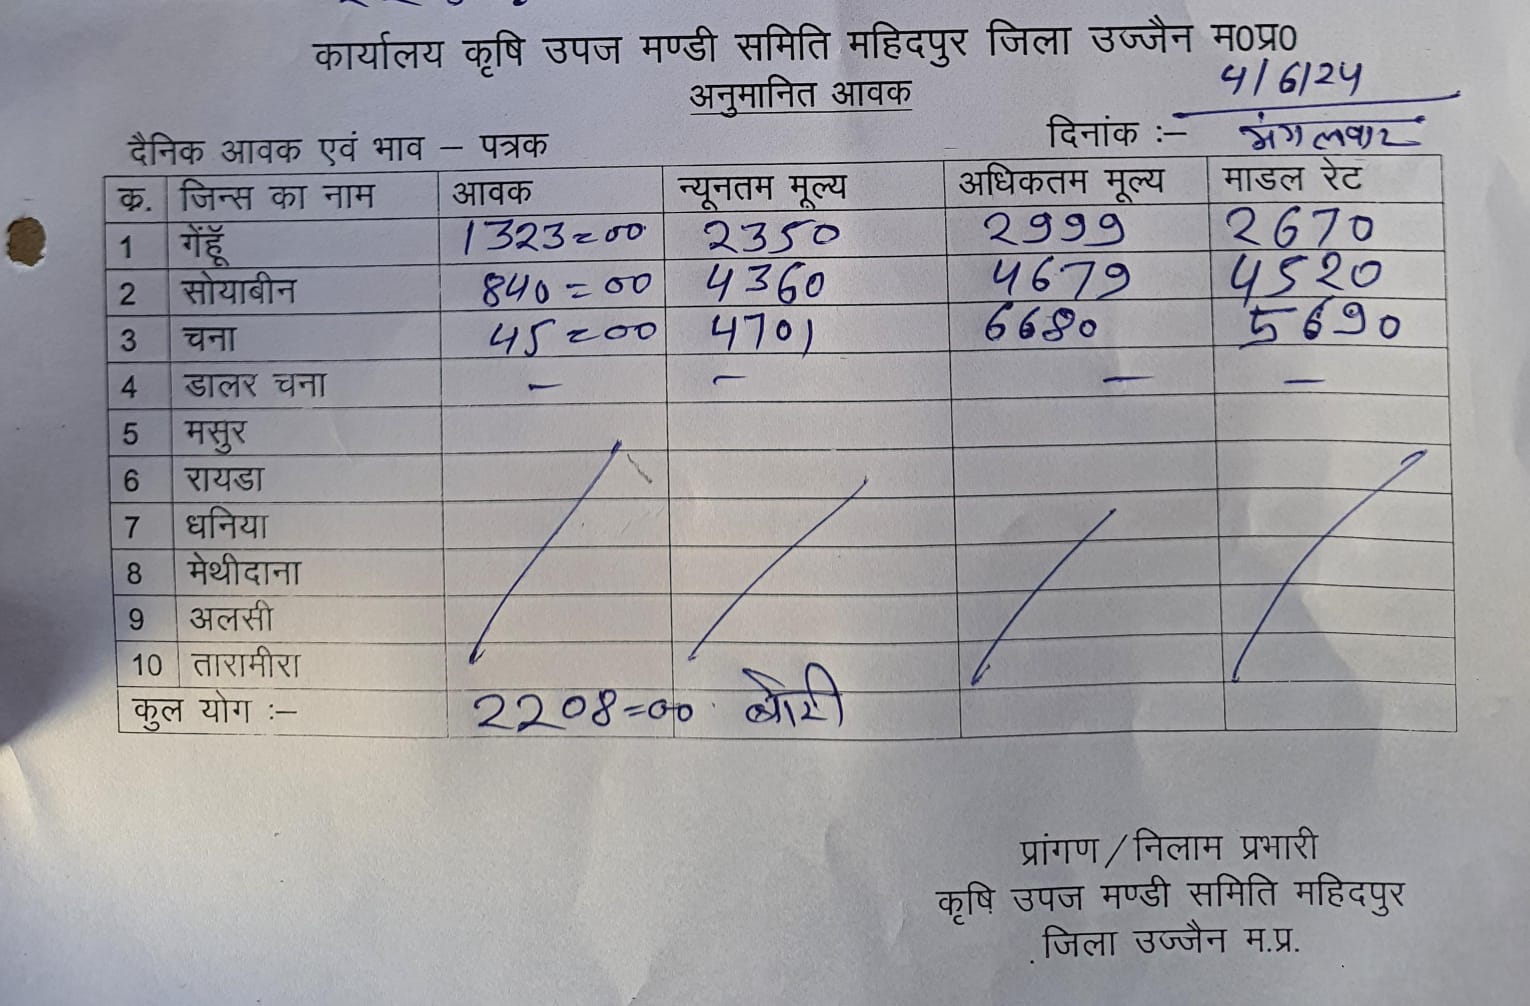 कार्यालय कृषि उपज मण्डी समिति महिदपुर जिला उज्जैन म0प्र0
अनुमानित आवक
4/6/24
दैनिक आवक एवं भाव – पत्रक दिनांक :– मंगलवार
क्र. जिन्स का नाम आवक न्यूनतम मूल्य अधिकतम मूल्य माडल रेट
1 गेंहूॅ 1323=00 2350 2999 2670
2 सोयाबीन 840=00 4360 4679 4520
3 चना 45=00 4701 6680 5690
4 डालर चना – – – –
5 मसुर
6 रायडा
7 धनिया
8 मेथीदाना
9 अलसी
10 तारामीरा
कुल योग :– 2208=00 बोरी
प्रांगण/निलाम प्रभारी
कृषि उपज मण्डी समिति महिदपुर
जिला उज्जैन म.प्र.